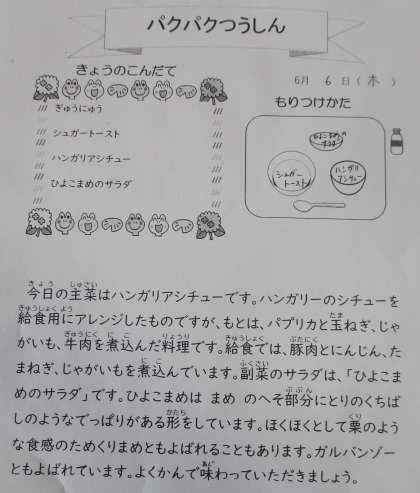 パクパクつうしん
きょうのこんだて
6月 6 日 ( 木 )
ぎゅうにゅう
シュガートースト
ハンガリアシチュー
ひよこまめのサラダ
もりつけかた
ひよこまめの
サラダ
シュガー
トースト
ハンガリ
アシチュー
今日の主菜はハンガリアシチューです。ハンガリーのシチューを
給食用にアレンジしたものですが、もとは、パプリカと玉ねぎ、じゃ
がいも、牛肉を煮込んだ料理です。給食では、豚肉とにんじん、た
まねぎ、じゃがいもを煮込んでいます。副菜のサラダは、「ひよこま
めのサラダ」です。ひよこまめは まめ のへそ部分にとりのくちば
しのようなでっぱりがある形をしています。ほくほくとして栗のよう
な食感のためくりまめともよばれることもあります。ガルバンゾー
ともよばれています。よくかんで味わっていただきましょう。